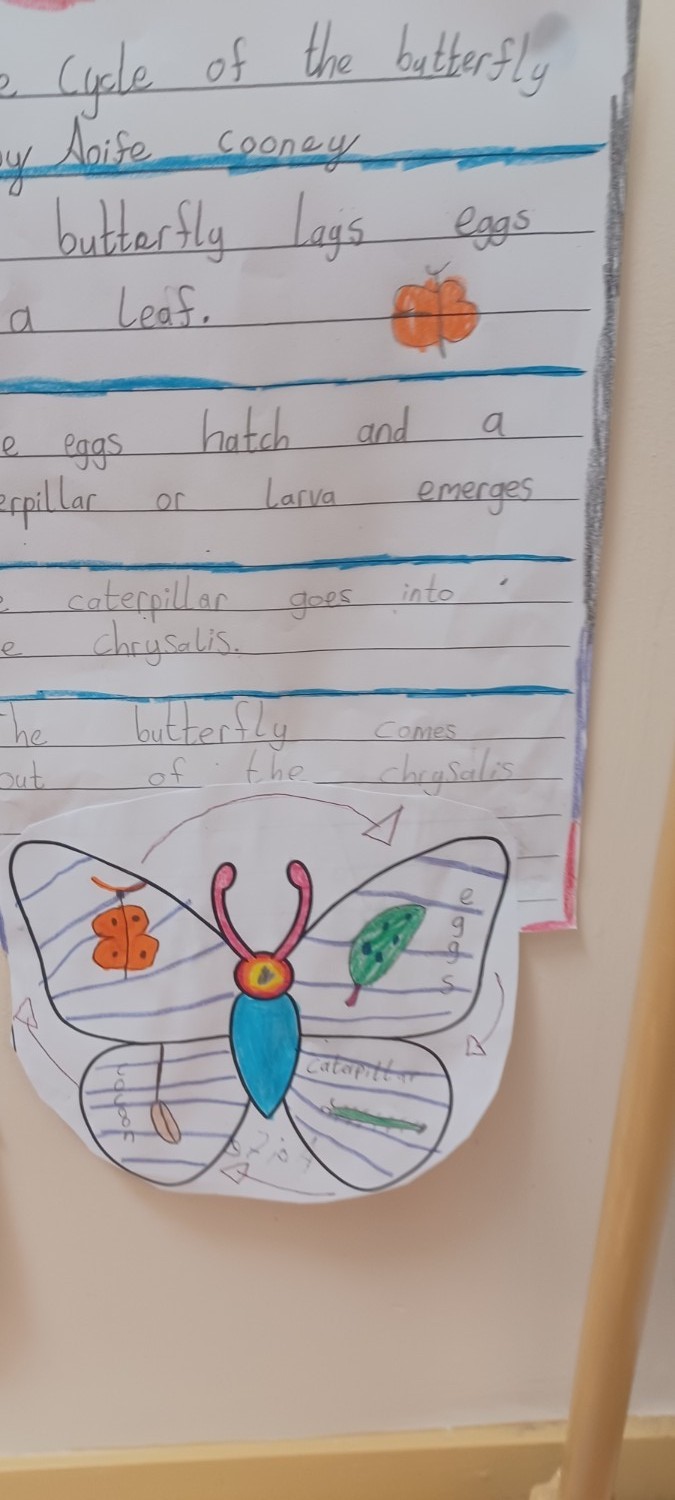 e Cycle of the butterfly
by Aoife cooney
butterfly lays eggs
a leaf.
e eggs hatch and a
erpillar or larva emerges
e caterpillar goes into
e chrysalis.
The butterfly comes
out of the chrysalis
eggs
catapillar
cocoon